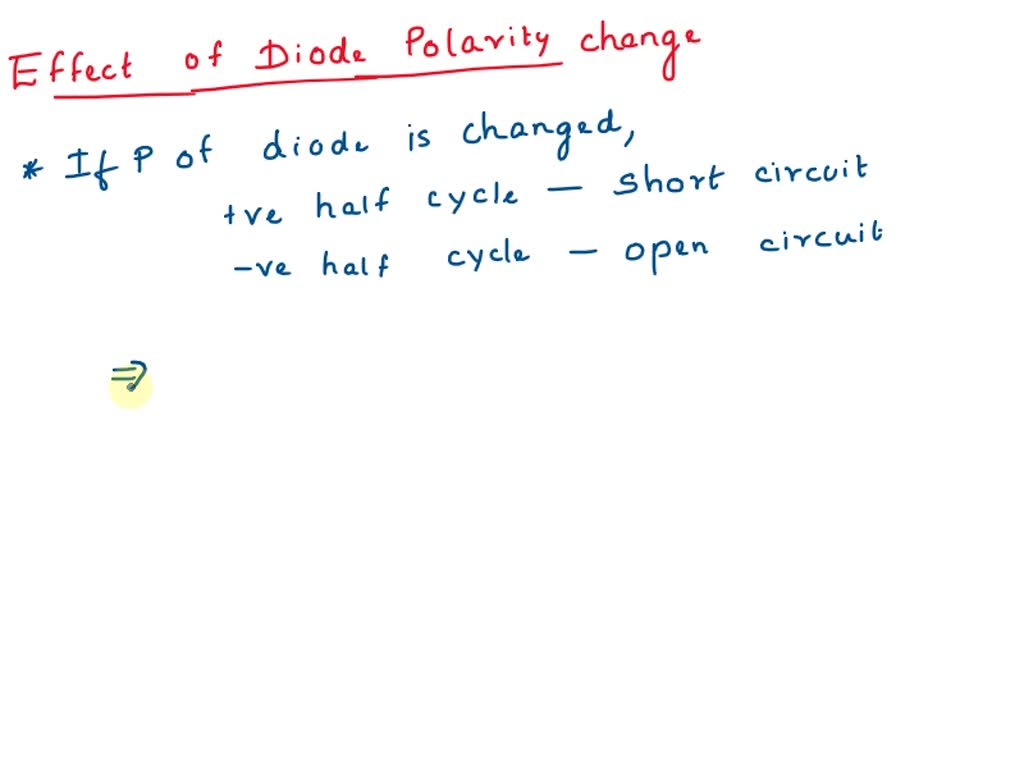 Effect of Diode Polarity change
* If P of diode is changed,
+ve half cycle — short circuit
-ve half cycle — open circuit
⇒